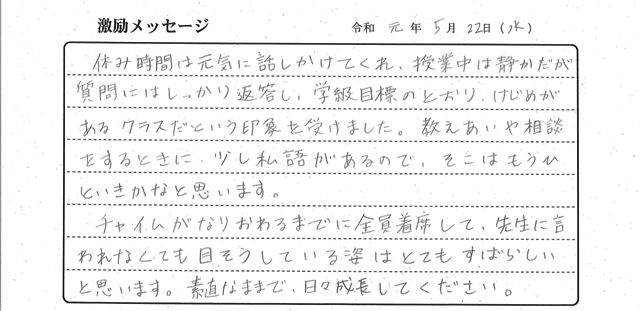 激励メッセージ 令和 元 年 5 月 22 日 (水)
休み時間は元気に話しかけてくれ、授業中は静かだが
質問にはしっかり返答し、学級目標のとおり、けじめが
あるクラスだという印象を受けました。教えあいや相談
をするときに、少し私語があるので、そこはもうひ
といきかなと思います。
チャイムがなりおわるまでに全員着席して、先生に言
われなくても目そうしている姿はとてもすばらしい
と思います。素直なままで、日々成長してください。